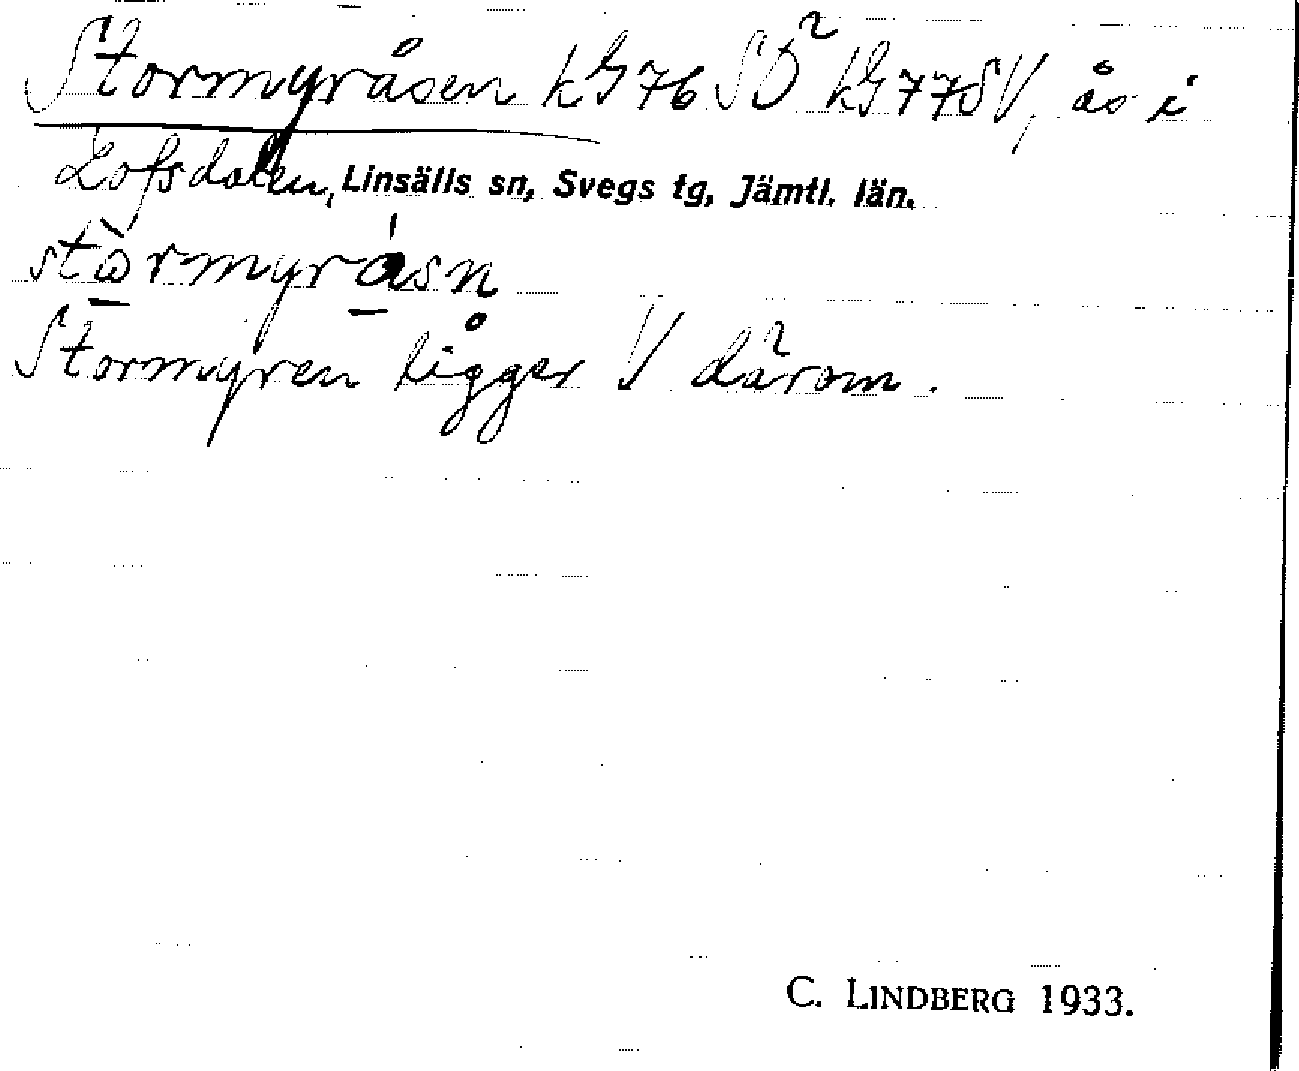 Stormyråsen kG76SÖ kG77SV, ås i
Lofsdalen, Linsälls sn, Svegs tg, Jämtl. län.
stò̠rmyrá̠sn
Stormyren ligger V därom.
C. LINDBERG 1933.